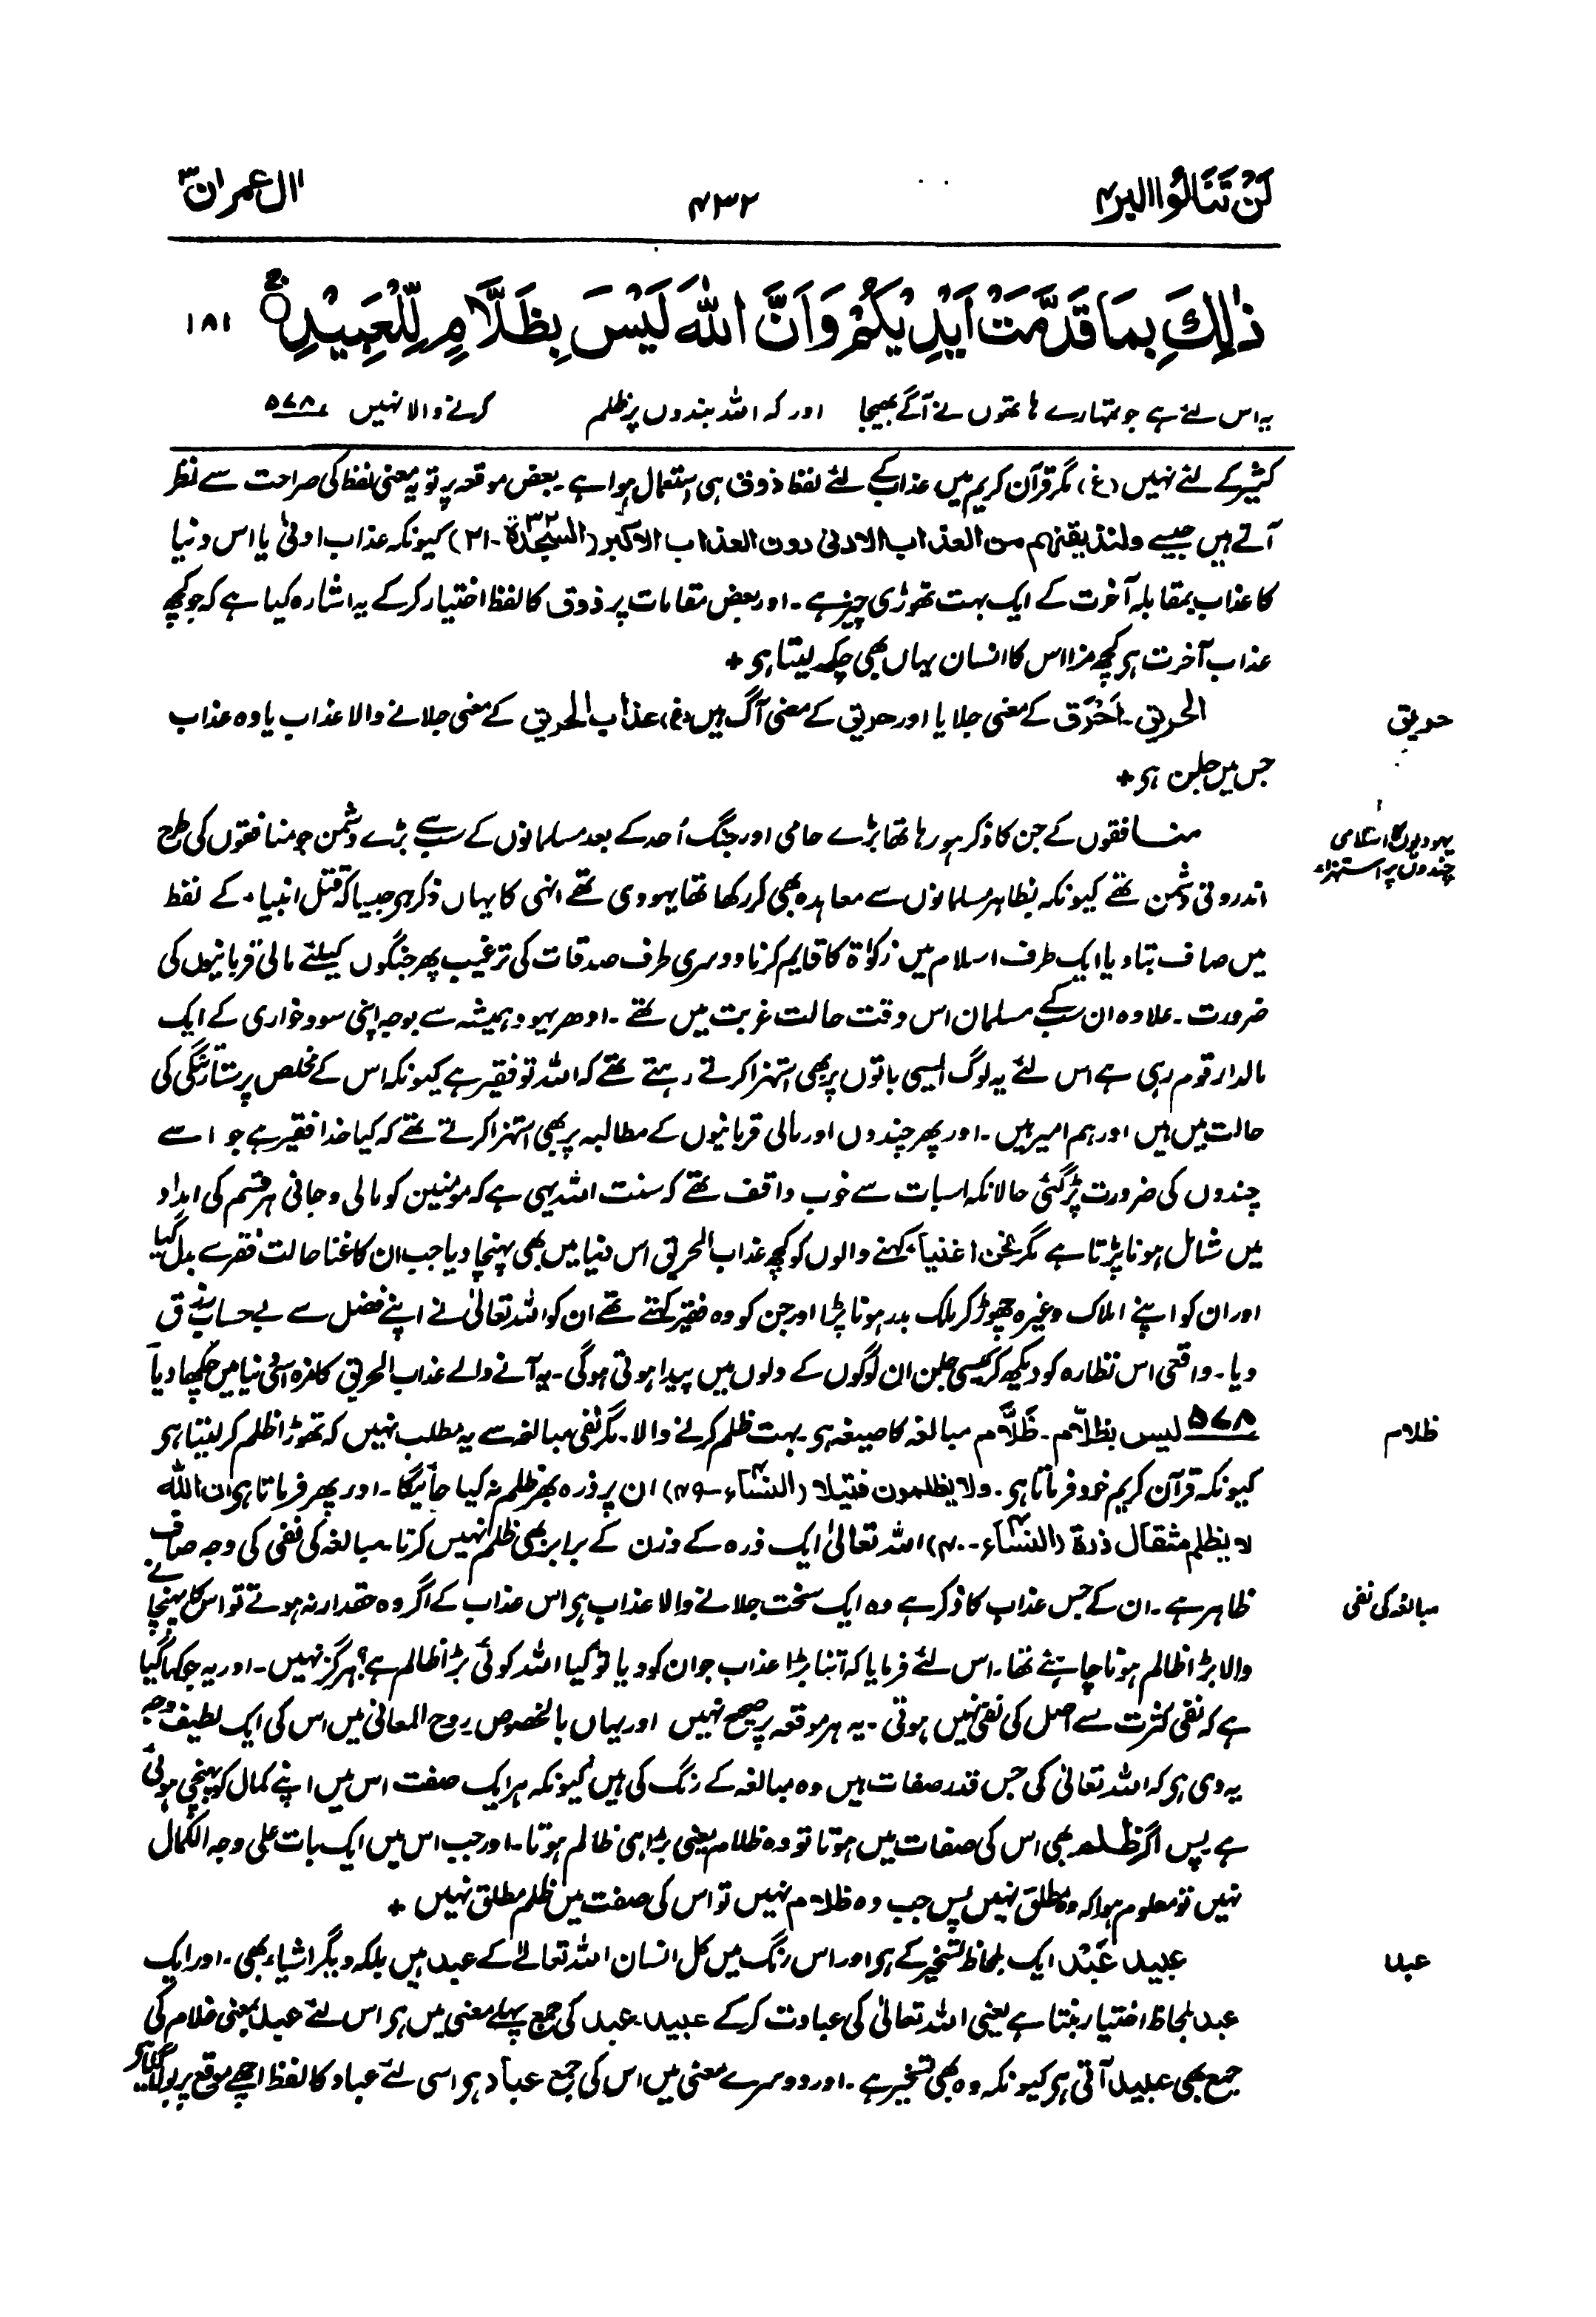 لَنْ تَنَالُوا البر ۴
۴۳۲
اٰل عمران ۳
ذٰلِكَ بِمَا قَدَّمَتْ اَيْدِيْكُمْ وَاَنَّ اللّٰهَ لَيْسَ بِظَلَّامٍ لِّلْعَبِيْدِ ۝ۚ ۱۸۱
یہ اس لئے ہے جو تمہارے ہاتھوں نے آگے بھیجا اور کہ اللہ بندوں پر ظلم کرنے والا نہیں ۵۷۸
کثیر کے لئے نہیں (غ) مگر قرآن کریم میں عذاب کے لئے لفظ ذوق ہی استعمال ہوا ہے۔ بعض موقعہ پر تو یہ معنی لفظ کی صراحت سے نظر
آتے ہیں جیسے ولنذیقنہم من العذاب الادنیٰ دون العذاب الاکبر (السجدۃ ۳۲-۲۱) کیونکہ عذاب ادنیٰ یا اس دنیا
کا عذاب بمقابلہ آخرت کے ایک بہت تھوڑی چیز ہے۔ اور بعض مقامات پر ذوق کا لفظ اختیار کرکے یہ اشارہ کیا ہے کہ جو کچھ
عذاب آخرت ہر کچھ مزا اس کا انسان یہاں بھی چکھ لیتا ہی +
حریق
الحریق۔ اَحْرَق کے معنی جلایا اور حریق کے معنی آگ ہیں (غ) عذاب الحریق کے معنی جلانے والا عذاب یا وہ عذاب
جس میں جلن ہی +
یہودیوں کا اسلامی
چندوں پر استہزاء
منافقوں کے جن کا ذکر ہو رہا تھا بڑے حامی اور جنگ اُحد کے بعد مسلمانوں کے سب سے بڑے دشمن جو منافقوں کی طرح
اندرونی دشمن تھے کیونکہ بظاہر مسلمانوں سے معاہدہ بھی کر رکھا تھا یہودی تھے انہی کا یہاں ذکر ہی جیسا کہ قتل انبیاء کے لفظ
میں صاف بتا دیا ایک طرف اسلام میں زکوٰۃ کا قایم کرنا دوسری طرف صدقات کی ترغیب پھر جنگوں کیلئے مالی قربانیوں کی
ضرورت۔ علاوہ ان سب کے مسلمان اس وقت حالت غربت میں تھے۔ ادھر یہود ہمیشہ سے بوجہ اپنی سود خواری کے ایک
مالدار قوم رہی ہے اس لئے یہ لوگ ایسی باتوں پر بھی استہزا کرتے رہتے تھے کہ اللہ تو فقیر ہے کیونکہ اس کے مخلص پرستار تنگی کی
حالت میں ہیں اور ہم امیر ہیں۔ اور پھر چندوں اور مالی قربانیوں کے مطالبہ پر بھی استہزا کرتے تھے کہ کیا خدا فقیر ہے جو اسے
چندوں کی ضرورت پڑ گئی حالانکہ اسبات سے خوب واقف تھے کہ سنت اللہ یہی ہے کہ مومنین کو مالی و جانی ہر قسم کی امداد
میں شامل ہونا پڑتا ہے مگر نحن اغنیاء کہنے والوں کو کچھ عذاب الحریق اس دنیا میں بھی پہنچا دیا جب ان کا غنا حالت فقر سے بدل گیا
اور ان کو اپنے املاک وغیرہ چھوڑ کر ملک بدر ہونا پڑا اور جن کو وہ فقیر کہتے تھے ان کو اللہ تعالیٰ نے اپنے فضل سے بے حساب رزق
دیا۔ واقعی اس نظارہ کو دیکھ کر کیسی جلن ان لوگوں کے دلوں میں پیدا ہوتی ہوگی۔ یہ آنے والے عذاب الحریق کا مزہ اسی دنیا میں چکھا دیا
ظلام
۵۷۸ لیس بظلّام۔ ظَلَّام مبالغہ کا صیغہ ہی۔ بہت ظلم کرنے والا۔ مگر نفی مبالغہ سے یہ مطلب نہیں کہ تھوڑا ظلم کر لیتا ہی
کیونکہ قرآن کریم خود فرماتا ہی۔ ولا یظلمون فتیلا (النساء ۴-۴۹) ان پر ذرہ بھر ظلم نہ کیا جائیگا۔ اور پھر فرماتا ہی ان اللہ
لا یظلم مثقال ذرۃ (النساء ۴-۴۰) اللہ تعالیٰ ایک ذرہ کے وزن کے برابر بھی ظلم نہیں کرتا۔ مبالغہ کی نفی کی وجہ صاف
مبالغہ کی نفی
ظاہر ہے۔ ان کے جس عذاب کا ذکر ہے وہ ایک سخت جلانے والا عذاب ہی اس عذاب کے اگر وہ حقدار نہ ہوتے تو اس کا پہنچانے
والا بڑا ظالم ہونا چاہئے تھا۔ اس لئے فرمایا کہ اتنا بڑا عذاب جو ان کو دیا تو کیا اللہ کوئی بڑا ظالم ہے؟ ہرگز نہیں۔ اور یہ جو کہا گیا
ہے کہ نفی کثرت سے اصل کی نفی نہیں ہوتی۔ یہ ہر موقعہ پر صحیح نہیں اور یہاں بالخصوص روح المعانی میں اس کی ایک لطیف وجہ
یہ دی ہی کہ اللہ تعالیٰ کی جس قدر صفات ہیں وہ مبالغہ کے رنگ کی ہیں کیونکہ ہر ایک صفت اس میں اپنے کمال کو پہنچی ہوئی
ہے پس اگر ظلم بھی اس کی صفات میں ہوتا تو وہ ظلام یعنی بڑا ہی ظالم ہوتا۔ اور جب اس میں ایک بات علی وجہ الکمال
نہیں تو معلوم ہوا کہ وہ مطلق نہیں پس جب وہ ظلام نہیں تو اس کی صفت میں ظلم مطلق نہیں +
عبد
عبید عَبْد ایک بلحاظ تسخیر کے ہی اور اس رنگ میں کل انسان اللہ تعالےٰ کے عبد ہیں بلکہ دیگر اشیاء بھی۔ اور ایک
عبد بلحاظ اختیار بنتا ہے یعنی اللہ تعالیٰ کی عبادت کرکے عبید۔ عبد کی جمع پہلے معنی میں ہی اس لئے عبد بمعنی غلام کی
جمع بھی عبید آتی ہی کیونکہ وہ بھی تسخیر ہے۔ اور دوسرے معنی میں اس کی جمع عباد ہی اسی لئے عباد کا لفظ اچھے موقع پر بولا گیا ہی